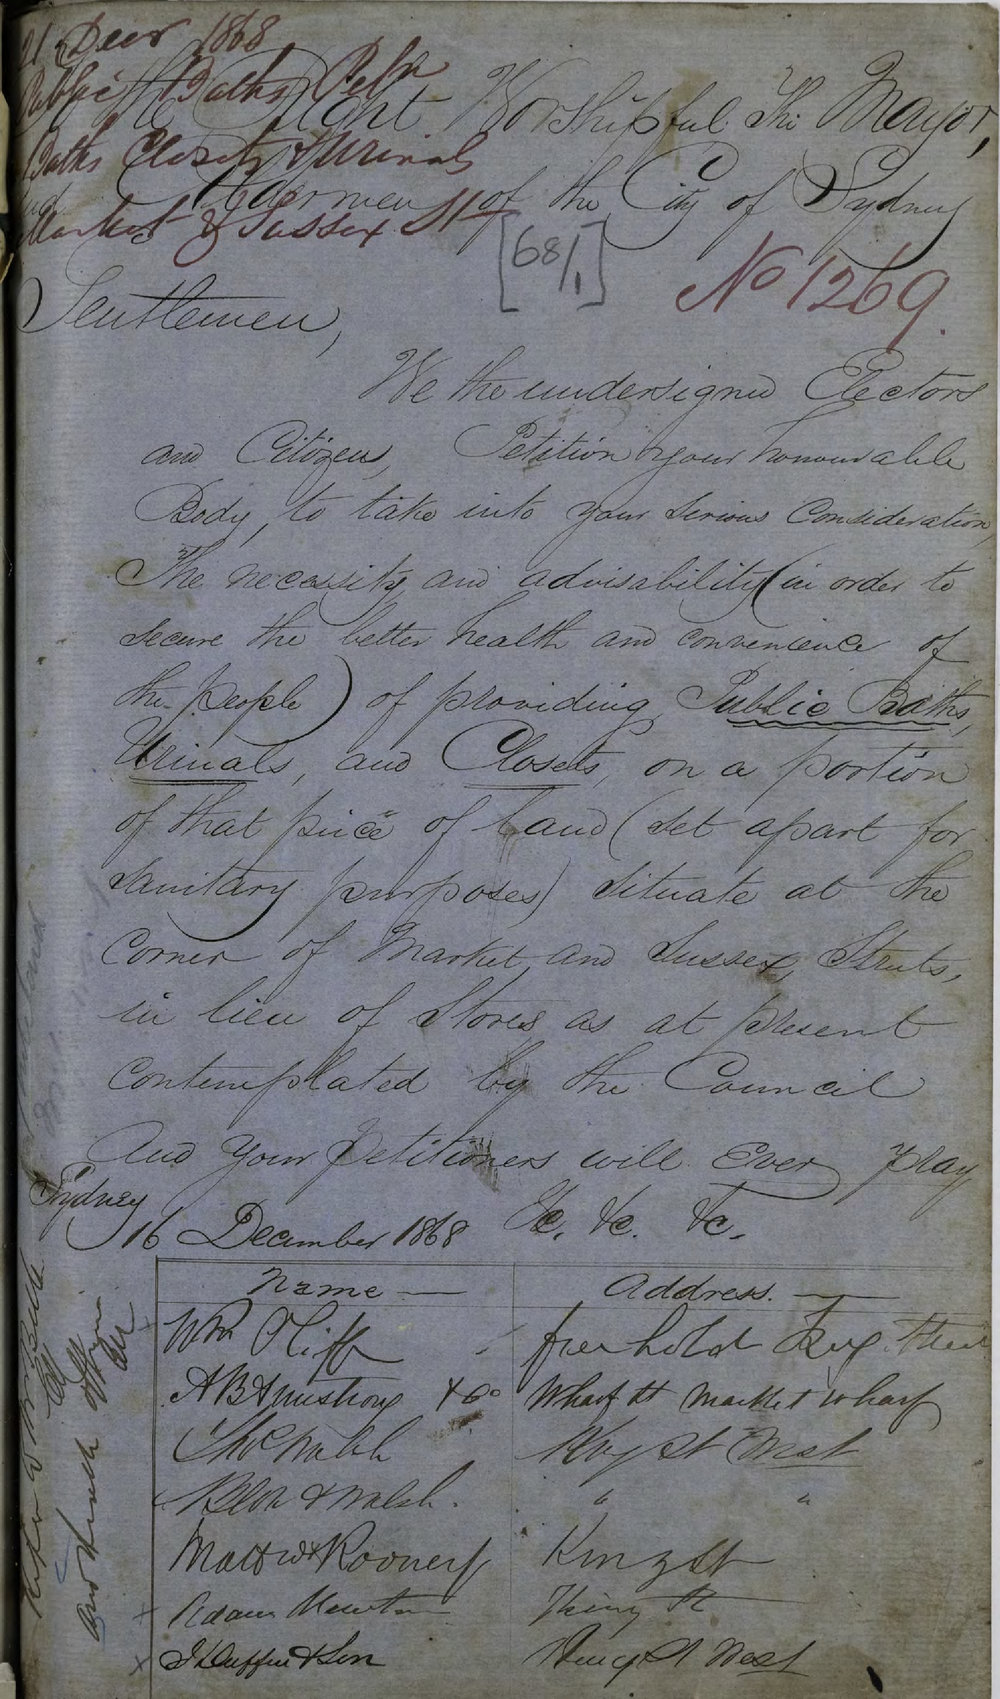 21 Decr 1868
Public Baths Petn
Baths Closets & Urinals
Market & Sussex St
To the Right Worshipful The Mayor,
and Aldermen of the City of Sydney
[68/1]
No 1269.
Gentlemen,
We the undersigned Electors
and Citizens, Petition your honourable
Body, to take into your serious Consideration,
The necessity and advisability (in order to
secure the better health and convenience of
the people) of providing Public Baths,
Urinals, and Closets, on a portion
of that piece of Land (set apart for
sanitary purposes) situate at the
Corner of Market and Sussex, Streets,
in lieu of Stores as at present
contemplated by the Council
And your petitioners will Ever pray
&c. &c. &c.
Sydney
16 December 1868
Name Address.
Wm Oliffe freehold
A B Armstrong & Co Wharf St Market Wharf
Thos Walsh King St West
& Walsh. " "
Matthew Rooney King St
Adam Newton King St
J Duffin & Son King St West